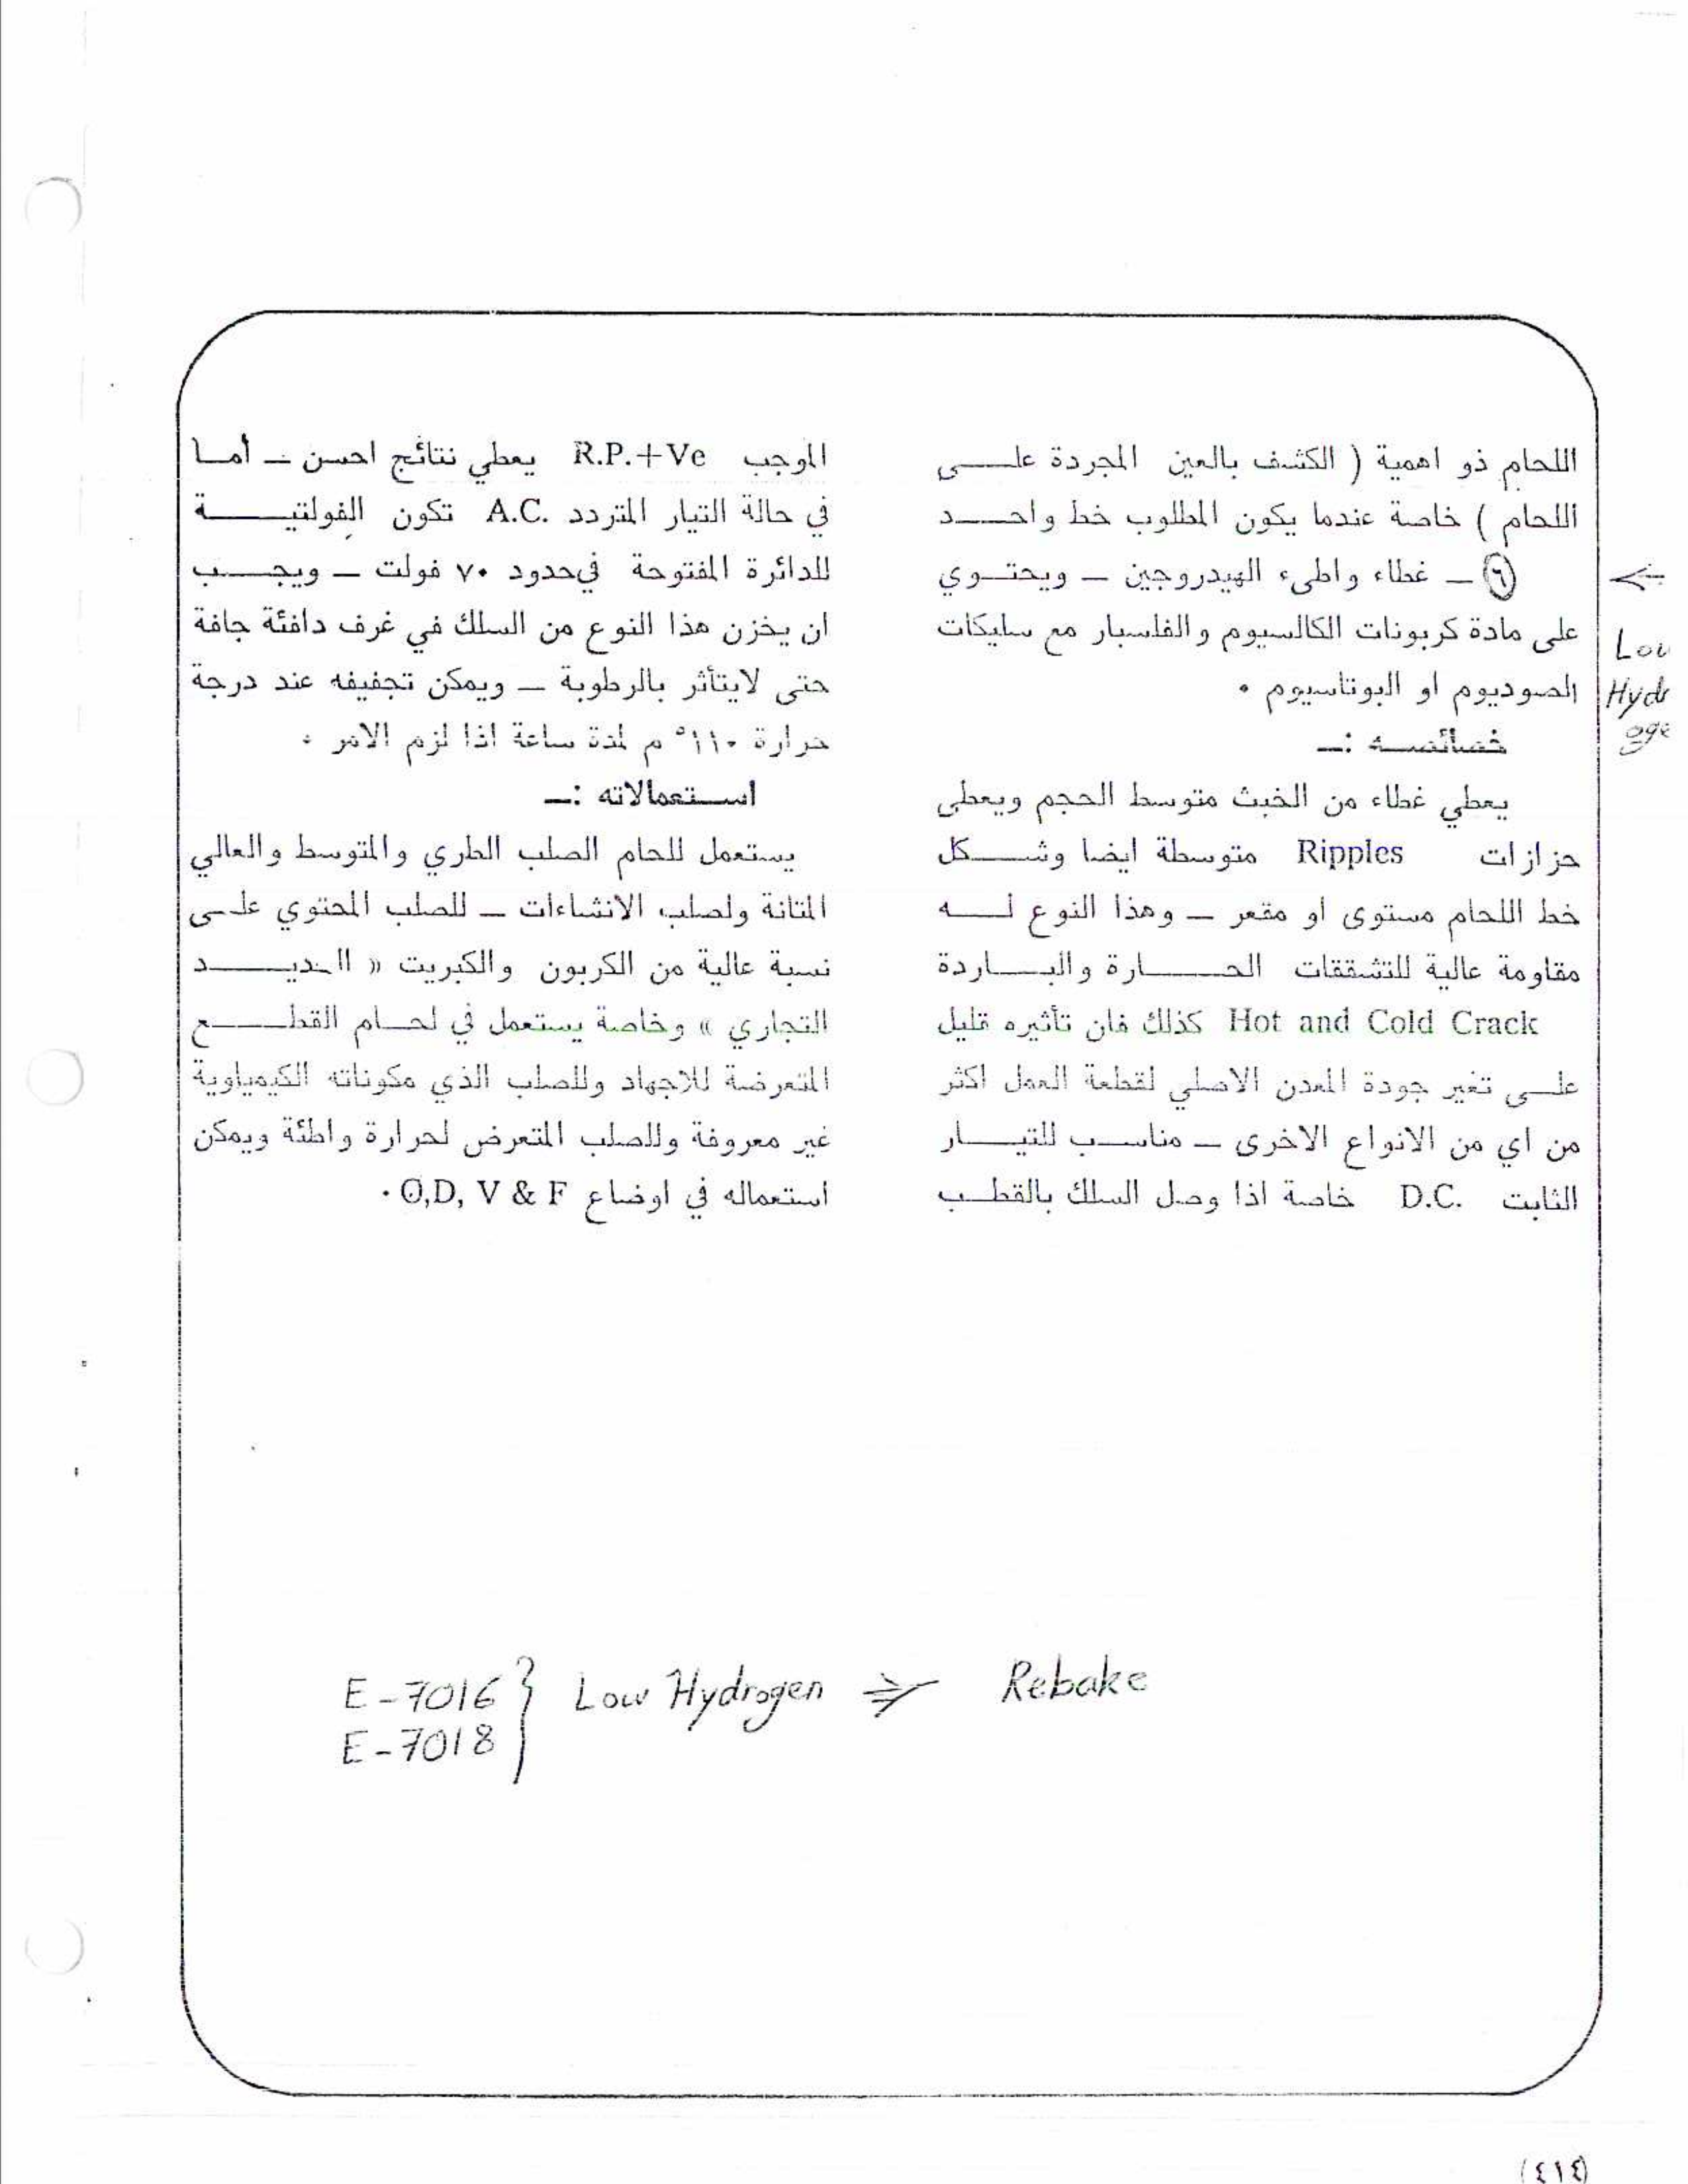 اللحام ذو اهمية ( الكشف بالعين المجردة على
اللحام ) خاصة عندما يكون المطلوب خط واحد
٦ – غطاء واطىء الهيدروجين – ويحتوي
على مادة كربونات الكالسيوم والفلسبار مع سليكات
الصوديوم او البوتاسيوم .
خصائصه :–
يعطي غطاء من الخبث متوسط الحجم ويعطى
حزازات Ripples متوسطة ايضا وشكل
خط اللحام مستوى او مقعر – وهذا النوع له
مقاومة عالية للتشققات الحارة والباردة
Hot and Cold Crack كذلك فان تأثيره قليل
على تغير جودة المعدن الاصلي لقطعة العمل اكثر
من اي من الانواع الاخرى – مناسب للتيار
الثابت D.C. خاصة اذا وصل السلك بالقطب
الموجب R.P.+Ve يعطي نتائج احسن – أما
في حالة التيار المتردد A.C. تكون الفولتية
للدائرة المفتوحة في حدود ٧٠ فولت – ويجب
ان يخزن هذا النوع من السلك في غرف دافئة جافة
حتى لايتأثر بالرطوبة – ويمكن تجفيفه عند درجة
حرارة ١١٠° م لمدة ساعة اذا لزم الامر .
استعمالاته :–
يستعمل للحام الصلب الطري والمتوسط والعالي
المتانة ولصلب الانشاءات – للصلب المحتوي على
نسبة عالية من الكربون والكبريت « الحديد
التجاري » وخاصة يستعمل في لحام القطع
المتعرضة للاجهاد وللصلب الذي مكوناته الكيمياوية
غير معروفة وللصلب المتعرض لحرارة واطئة ويمكن
استعماله في اوضاع O,D, V & F .
←
Low
Hydr
oge
E-7016 } Low Hydrogen ⇒ Rebake
E-7018
(٤١٤)